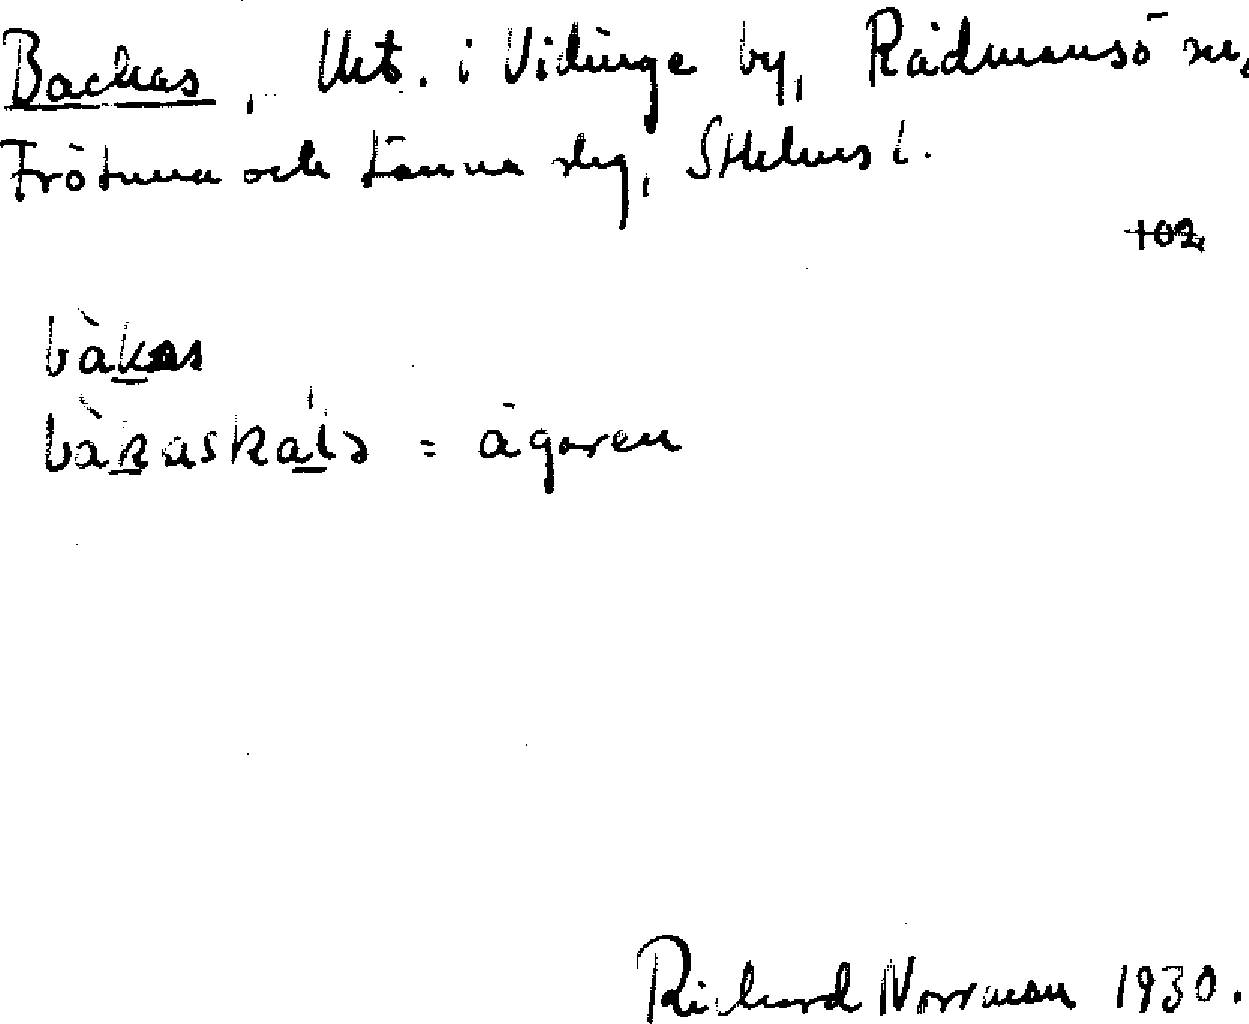 Backas, Utb. i Vidinge by, Rådmansö sn,
Frötuna och Länna slg, Sthlms l.
102
bàkas
bàkaskálə = ägaren
Richard Norrman 1930.